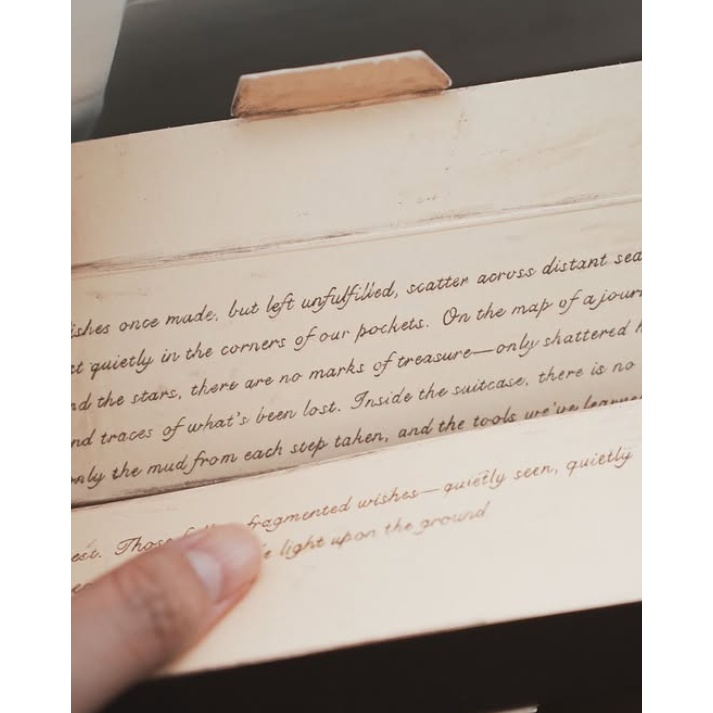 ishes once made, but left unfulfilled, scatter across distant sea
st quietly in the corners of our pockets. On the map of a journ
nd the stars, there are no marks of treasure—only shattered h
nd traces of what's been lost. Inside the suitcase, there is no
only the mud from each step taken, and the tools we've learne
est. Those fragmented wishes—quietly seen, quietly
light upon the ground